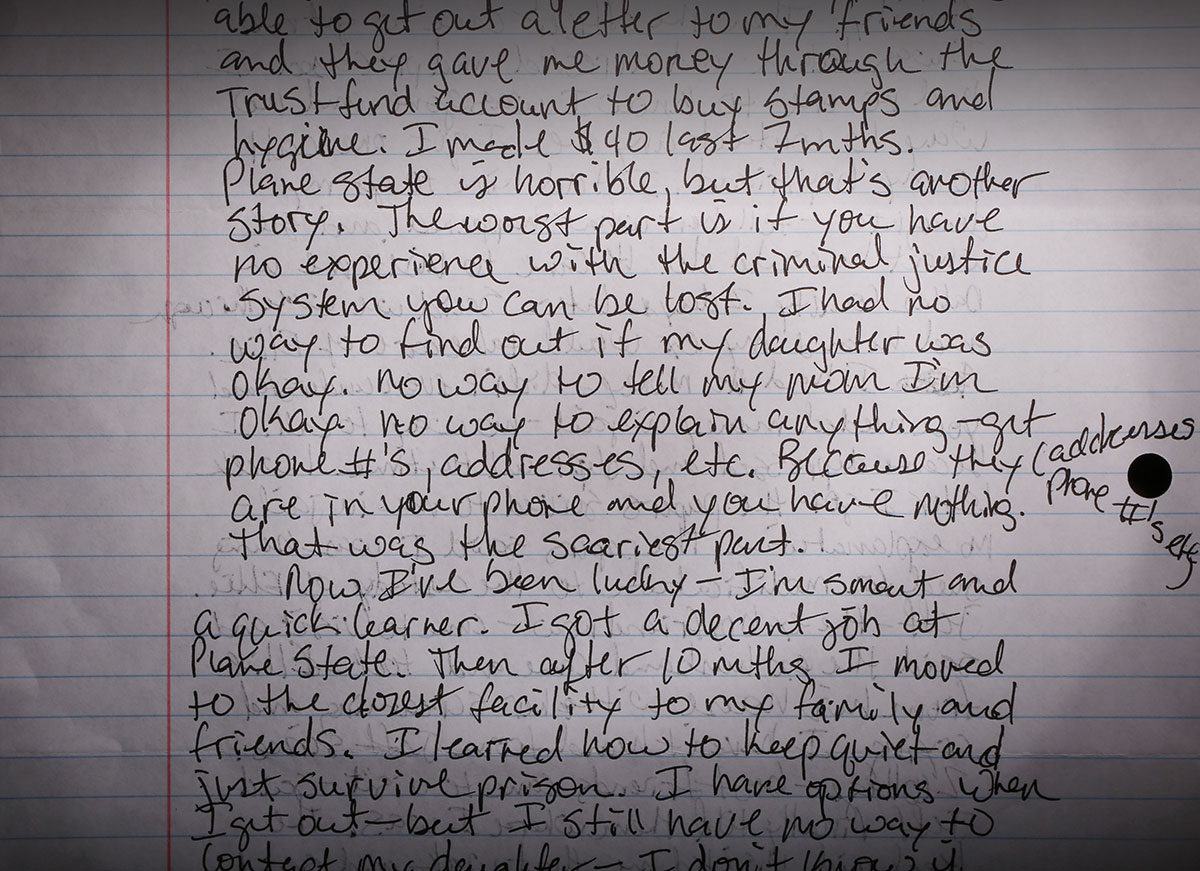 able to get out a letter to my friends
and they gave me money through the
Trustfund account to buy stamps and
hygiine. I made $40 last 7mths.
Plane state is horrible, but that's another
story. The worst part is if you have
no experience with the criminal justice
system you can be lost. I had no
way to find out if my daughter was
okay. No way to tell my mom I'm
okay. no way to explain anything - get
phone #'s, addresses, etc. Because they (addresses
phone #'s etc)
are in your phone and you have nothing.
That was the scariest part.
Now I've been lucky - I'm smart and
a quick learner. I got a decent job at
Plane State. Then after 10 mths I moved
to the closest facility to my family and
friends. I learned how to keep quiet and
just survive prison. I have options when
I get out - but I still have no way to
contact my daughter - I don't know if